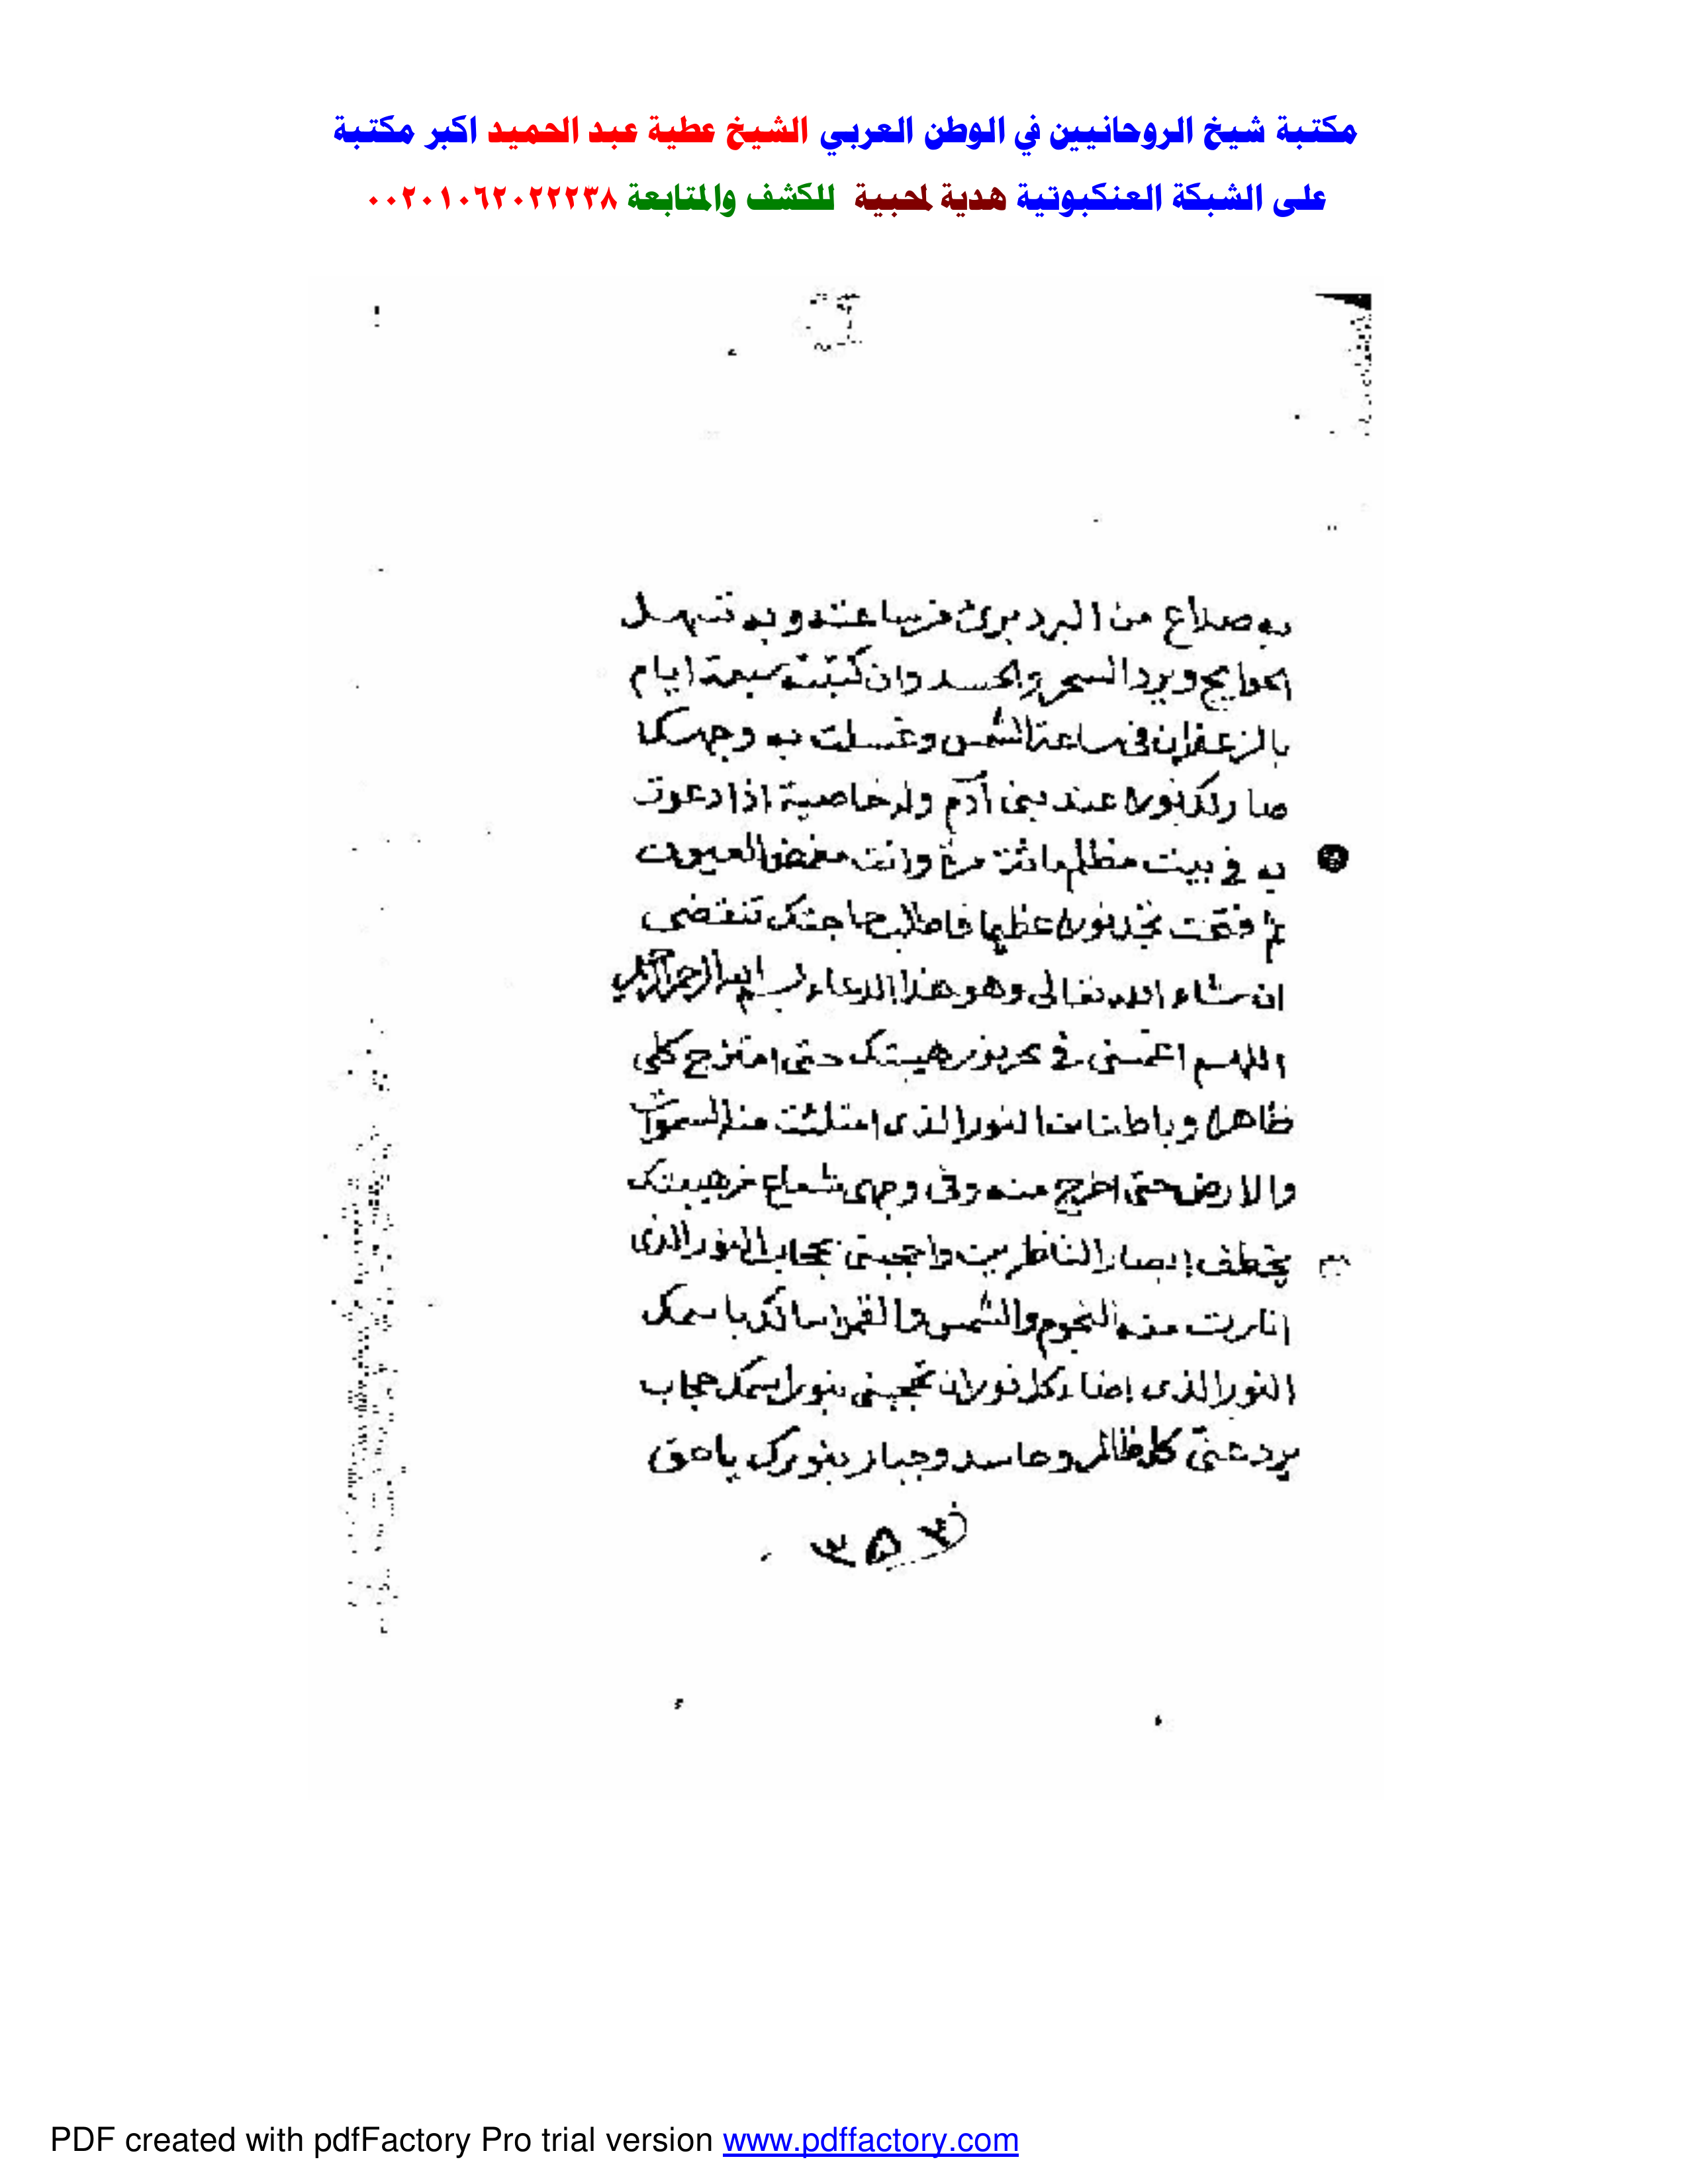 مكتبة شيخ الروحانيين في الوطن العربي الشيخ عطية عبد الحميد اكبر مكتبة
على الشبكة العنكبوتية هدية لمحبية للكشف والمتابعة ٠٠٢٠١٠٦٢٠٢٢٢٣٨
به صداع من البرد برئ من ساعته وبه تسهل
الحوايج ويرد السحر والحسد وان كتبته سبعة ايام
بالزعفران في ساعة الشمس وغسلت به وجهك
صار لك نورا عند بنى آدم وله خاصية اذا دعوت
به في بيت مظلم مائة مرة وانت مغمض العيون
ثم فتحت تجد نورا عظيما فاطلب حاجتك تنقضى
ان شاء الله تعالى وهو هذا الدعاء بسم الله الرحمن الرحيم
اللهم اغمسنى في بحر نور هيبتك حتى امتزج كلى
ظاهرا وباطنا من النور الذى امتلئت منه السموات
والارض حتى اخرج منه وفى وجهى شعاع من هيبتك
يخطف ابصار الناظرين واحجبنى بحجاب النور الذى
انارت منه النجوم والشمس والقمر اسالك باسمك
النور الذى اضاء كل نور ان تحجبنى بنور اسمك حجاب
يرد عنى كل ظالم وحاسد وجبار بنورك ياحق
PDF created with pdfFactory Pro trial version www.pdffactory.com